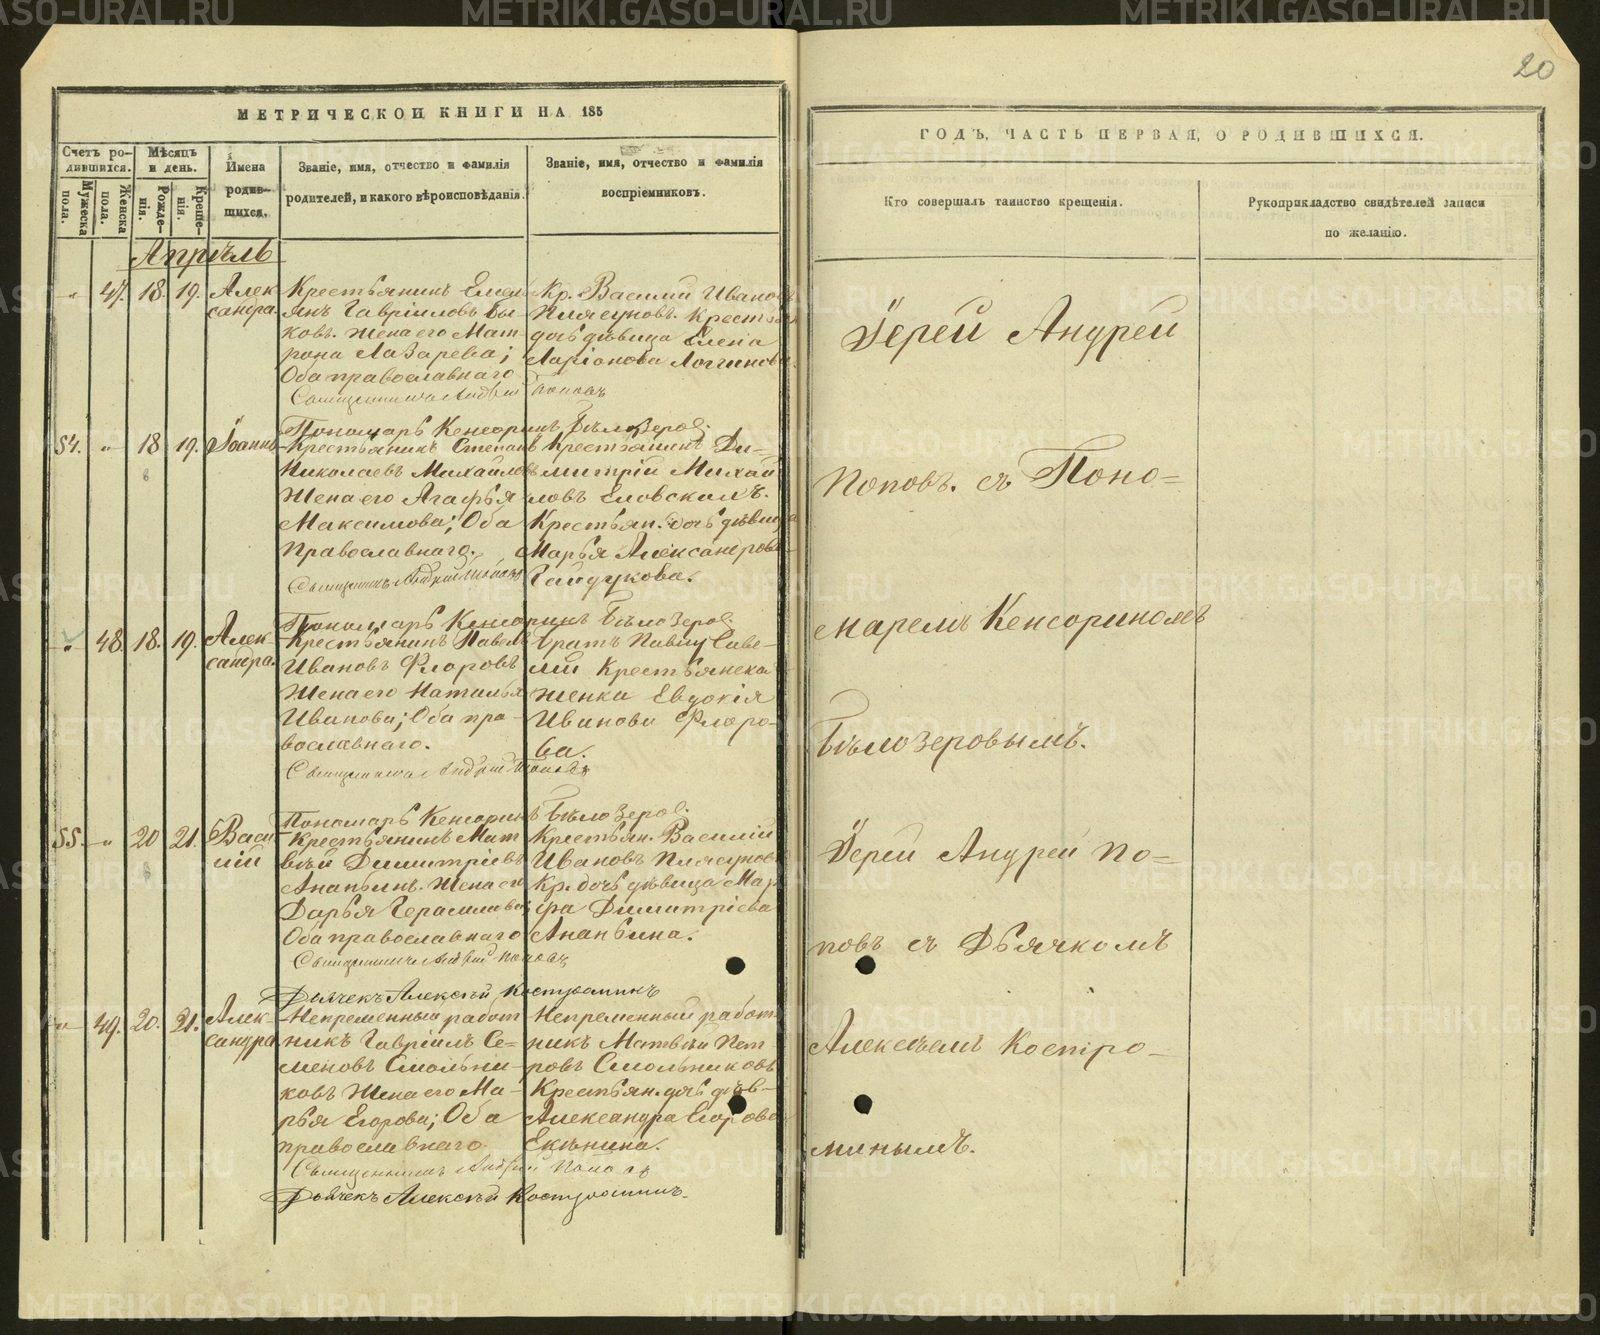 METRIKI.GASO-URAL.RU
20
МЕТРИЧЕСКОЙ КНИГИ НА 185
Счетъ родившихся.
Мужеска пола.
Женска пола.
Мѣсяцъ и день.
Рожденія.
Крещенія.
Имена родившихся.
Званіе, имя, отчество и фамилія
родителей, и какого вѣроисповѣданія.
Званіе, имя, отчество и фамилія
воспріемниковъ.
Апрѣль
47. 18. 19. Александра
Крестьянинъ Емель
янъ Гавріиловъ Бы-
ковъ. Жена его Мат
рона Лазарева;
Оба православнаго
Кр. Василій Ивановъ
Плясуновъ. Крестьян
дочь дѣвица Елена
Ларіонова Логинова
Священникъ Андрей Поповъ
Пономарь Кенсоринъ Бѣлозеров.
54. " 18 19. Іоаннъ
Крестьянинъ Степанъ
Николаевъ Михайловъ
Жена его Агафья
Максимова; Оба
Православнаго.
Крестьянинъ Ди-
митрій Михай
ловъ Еловскихъ.
Крестьян. дочь дѣвица
Марья Александрова
Гайдукова.
Священникъ Андрей Поповъ
Пономарь Кенсоринъ Бѣлозеров.
" 48. 18. 19. Александра.
Крестьянинъ Павелъ
Ивановъ Флоровъ
Жена его Наталья
Иванова; Оба пра-
вославнаго.
Братъ Павлу Саве-
лій Крестьянска
женка Евдокія
Иванова Флоро-
ва.
Священникъ Андрей Поповъ
Пономарь Кенсоринъ Бѣлозеров.
55. " 20 21. Василій
Крестьянинъ Мат
вѣй Димитріевъ
Ананьинъ. Жена его
Дарья Герасимова;
Оба православнаго
Крестьян. Василій
Ивановъ Плясуновъ
Кр. дочь дѣвица Мар
фа Димитріева
Ананьина.
Священникъ Андрей Поповъ
Дьячекъ Алексѣй Костроминъ
" 49. 20. 21. Александра
Непременный работ
никъ Гавріилъ Се-
меновъ Смольни-
ковъ Жена его Ма-
рья Егорова; Оба
православнаго.
Непременный работ
никъ Матвѣй Пет
ровъ Смольниковъ
Крестьян. дочь дѣв-
Александра Егорова
Екѣнина.
Священникъ Андрей Поповъ
Дьячекъ Алексѣй Костроминъ.
ГОДЪ, ЧАСТЬ ПЕРВАЯ, О РОДИВШИХСЯ.
Кто совершалъ таинство крещенія.
Рукоприкладство свидѣтелей записи
по желанію.
Іерей Андрей
Поповъ. съ Поно-
маремъ Кенсориномъ
Бѣлозеровымъ.
Іерей Андрей По-
повъ съ Дьячкомъ
Алексѣемъ Костро-
минымъ.